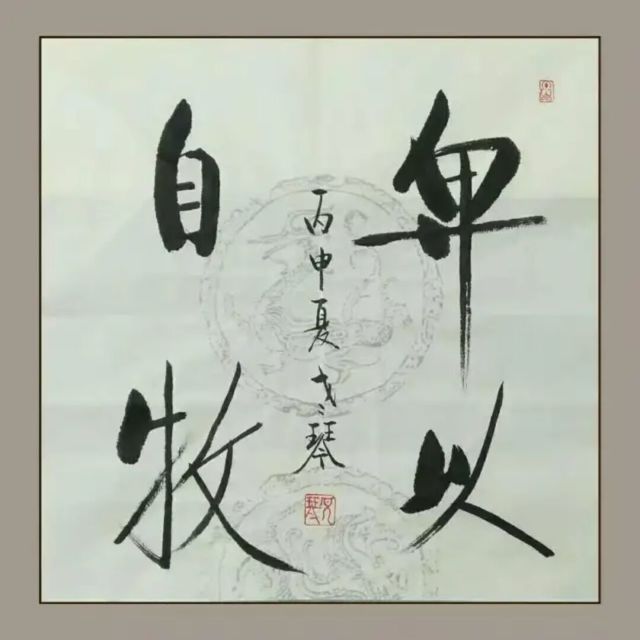 卑以
自牧
丙申夏戈琴